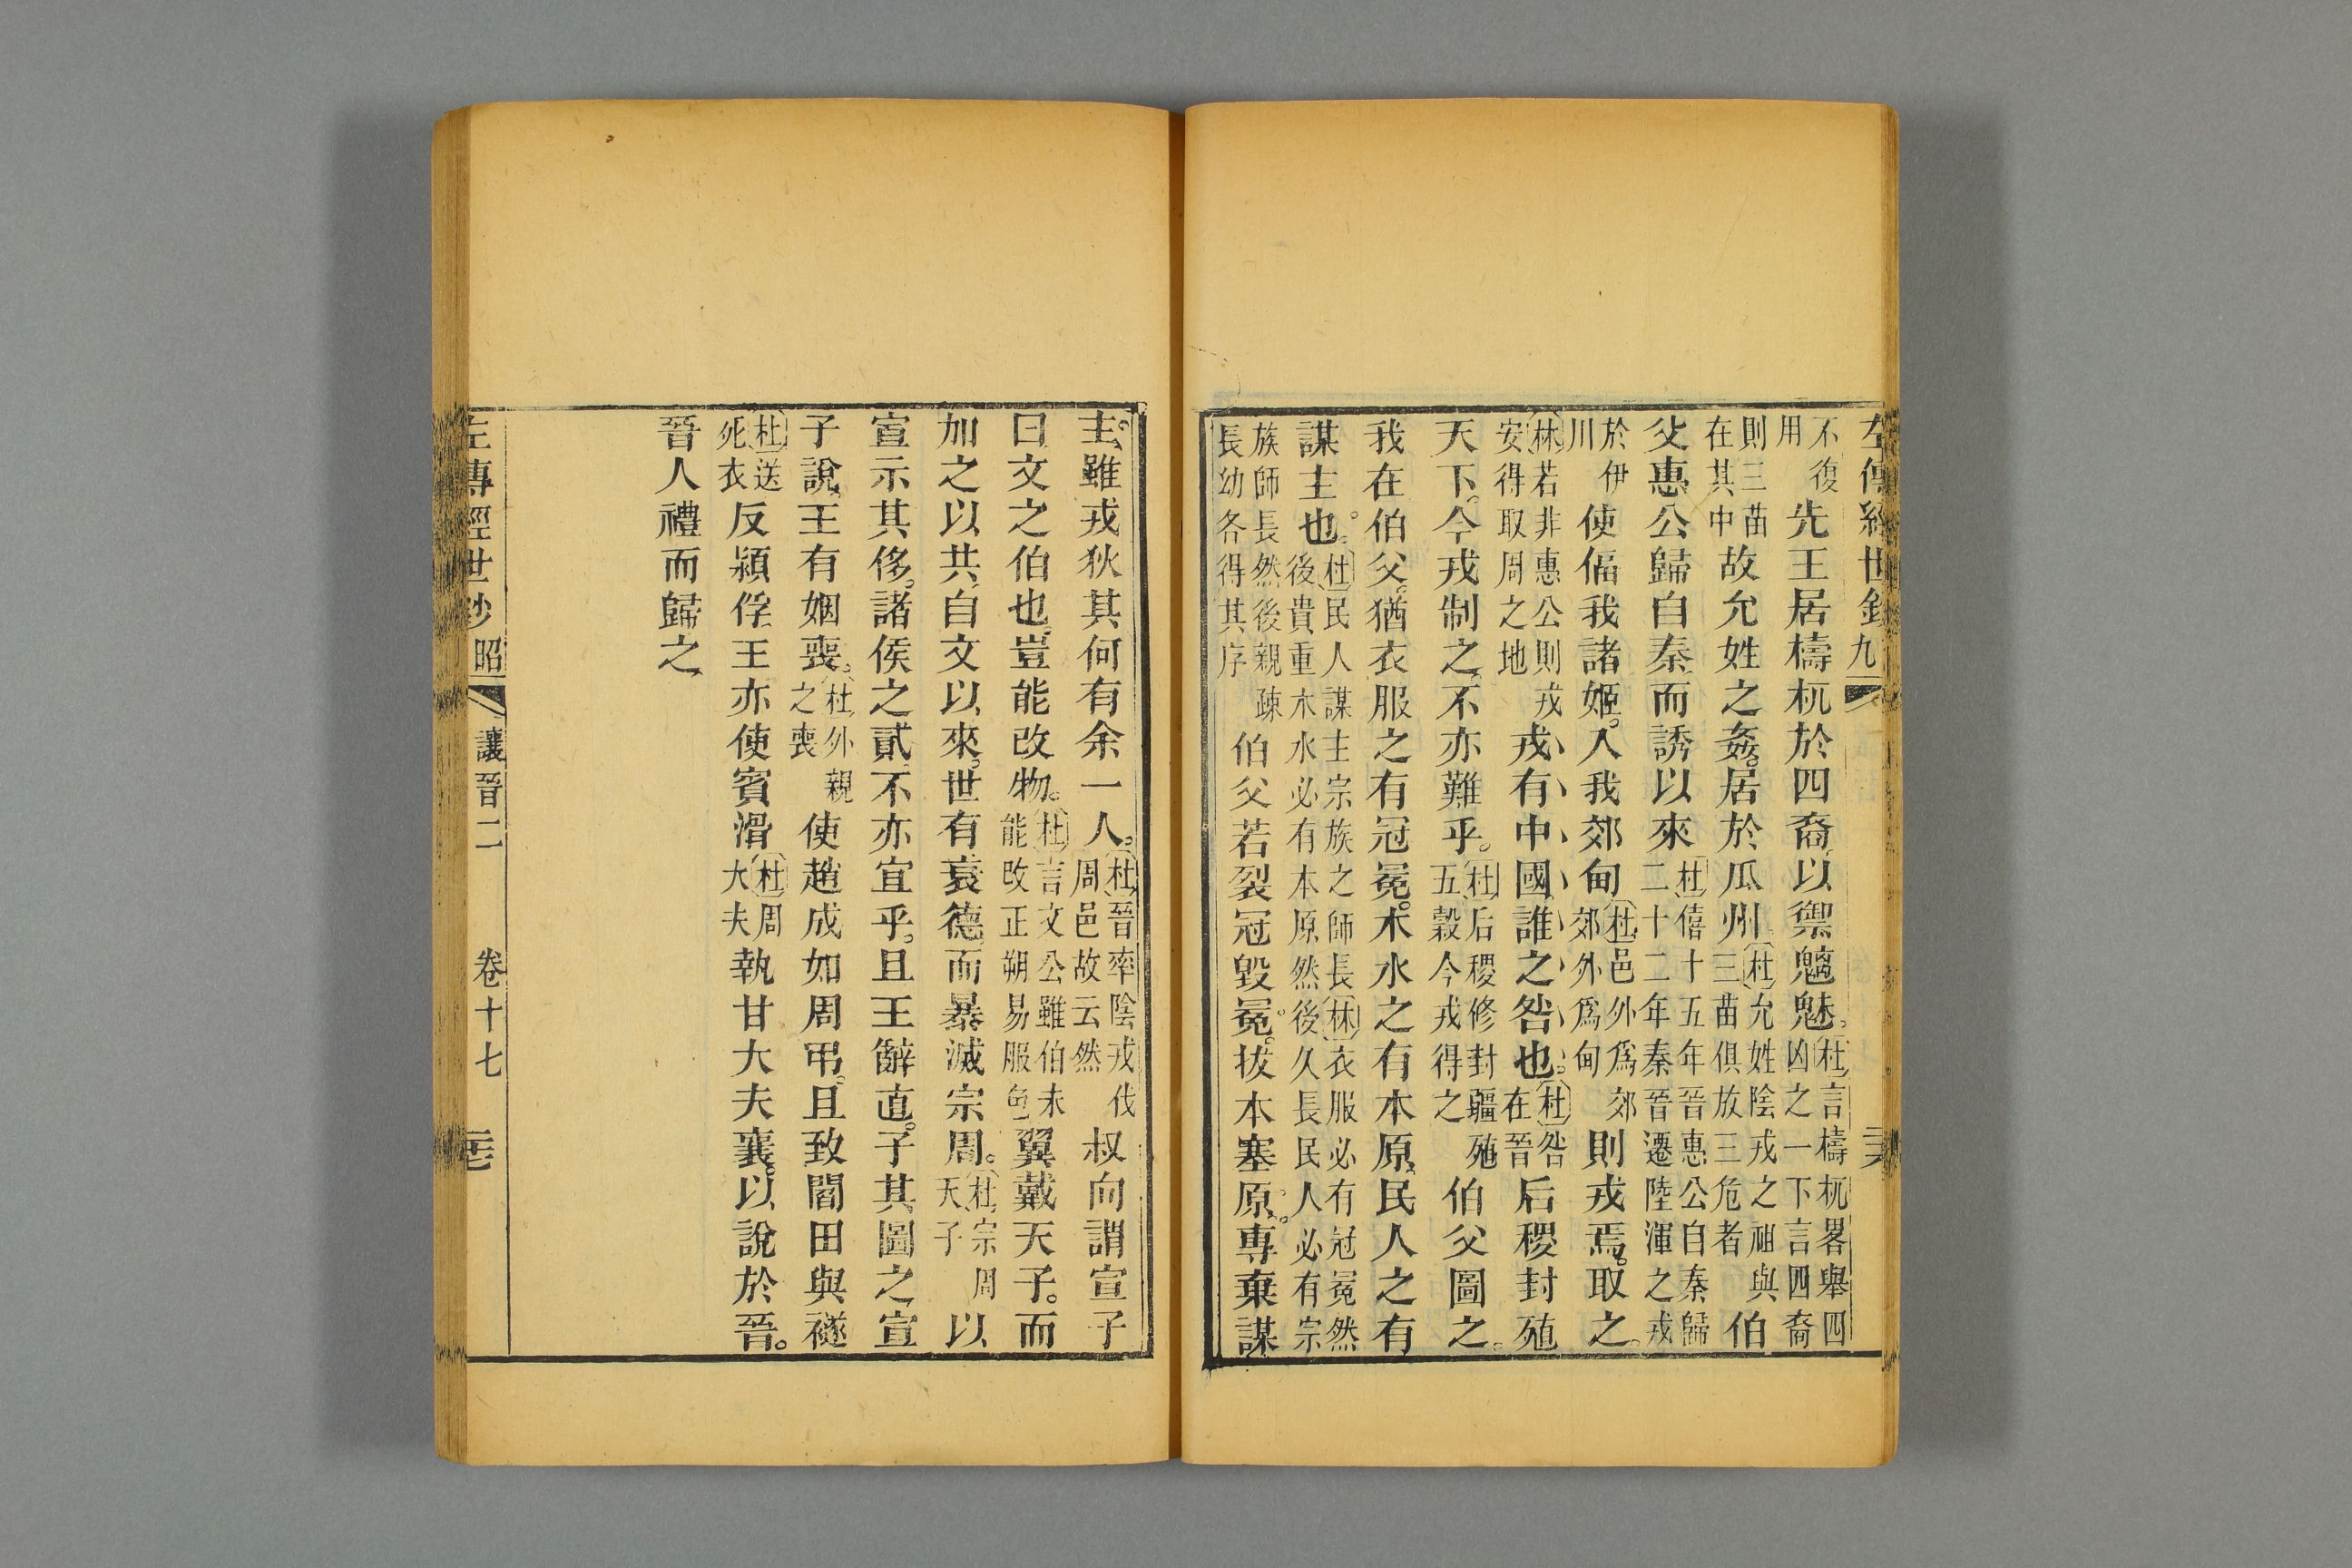 左傳經世鈔 九 二六
不復用先王居檮杌於四裔以禦魑魅杜言檮杌畧舉四凶之一下言四裔
則三苗在其中故允姓之姦居於瓜州杜允姓陰戎之祖與三苗俱放三危者伯
父惠公歸自秦而誘以來杜僖十五年晉惠公自秦歸二十二年秦晉遷陸渾之戎
於伊川使偪我諸姬入我郊甸杜邑外爲郊郊外爲甸則戎焉取之
林若非惠公則戎安得取周之地戎有中國誰之咎也杜咎在晉后稷封殖
天下今戎制之不亦難乎杜后稷修封疆殖五穀今戎得之伯父圖之
我在伯父猶衣服之有冠冕木水之有本原民人之有
謀主也杜民人謀主宗族之師長林衣服必有冠冕然後貴重木水必有本原然後久長民人必有宗
族師長然後親疎長幼各得其序伯父若裂冠毀冕拔本塞原專棄謀
主雖戎狄其何有余一人杜晉率陰戎伐周邑故云然叔向謂宣子
曰文之伯也豈能改物杜言文公雖伯未能改正朔易服色翼戴天子而
加之以共自文以來世有衰德而暴滅宗周杜宗周天子以
宣示其侈諸侯之貳不亦宜乎且王辭直子其圖之宣
子說王有姻喪杜外親之喪使趙成如周弔且致閻田與襚
杜送死衣反潁俘王亦使賓滑杜周大夫執甘大夫襄以說於晉
晉人禮而歸之
左傳經世鈔 昭 讓晉二 卷十七 二七